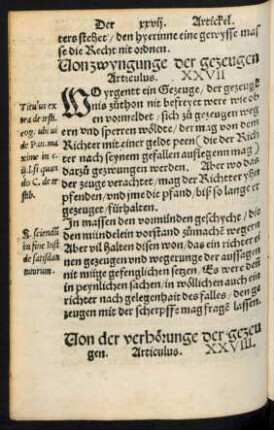 Der xxvij. Artickel.
ters stehet / den hyerinne eine gewysse mas
se die Recht nit ordnen.
Von zwyngunge der gezeugen
Articulus. XXVII
WO yrgent ein Gezeuge / der gezeug
nis zuthon nit befreyet were wie ob
en vormeldet / sich zu gezeugen weg
ern vnd sperren wöldte / der mag von dem
Richter mit einer geldt peen (die der Rich
ter nach seynem gefallen auflegenn mag)
dartzu gezwungen werden. Aber wo das
der zeuge verachtet / mag der Richter yhn
pfenden / vnd jme die pfand / biß so lange er
gezeuget / fürhalten.
In massen den vormünden geschycht / die
den mündelein vorstand zumachen wegern
Aber vil halten disen won / das ein richter ei
nen gezeugen vnd wegerunge der aussagen
nit müge gefenglichen setzen / Es were denn
in peynlichen sachen / in wöllichen auch ein
richter nach gelegenhait des falles / den ge
zeugen mit der scherpffe mag fragen lassen.
Von der verhörunge der gezeu
gen. Articulus. XXVIII.
Titulus ex
tra de testi.
cog. vbi
de Pan. ma
xime in c.
ij. l. si quan
do C. de te
stib.
ff. sciendū
in fine
de satisdan